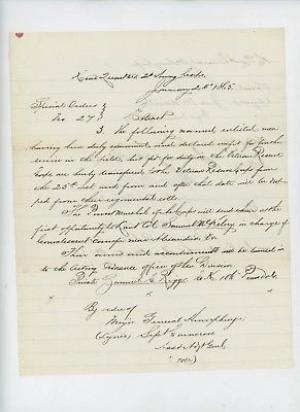 Head Quarters 2d Army Corps
January 2 1865
Special Orders
No 27 Extract
3. The following named enlisted men
having been duly examined and declared unfit for
service in the field, but fit for duty in the Veteran Reserve
Corps are hereby transferred to the Veteran Reserve Corps from
the 25th inst and from and after that date will be
from their regimental rolls.
The Provost Marshal of the Corps will send them at the
first opportunity to Lieut Col Samuel McKelvy in charge of
Convalescent Camp near Alexandria Va
Their arms and accoutrements will be turned in
to the Acting Ordnance Officer of the Division
Private Samuel Co K
By order of
Major General Humphreys
(Signed) Sept Carncross
Asst Adjt Genl
(over)